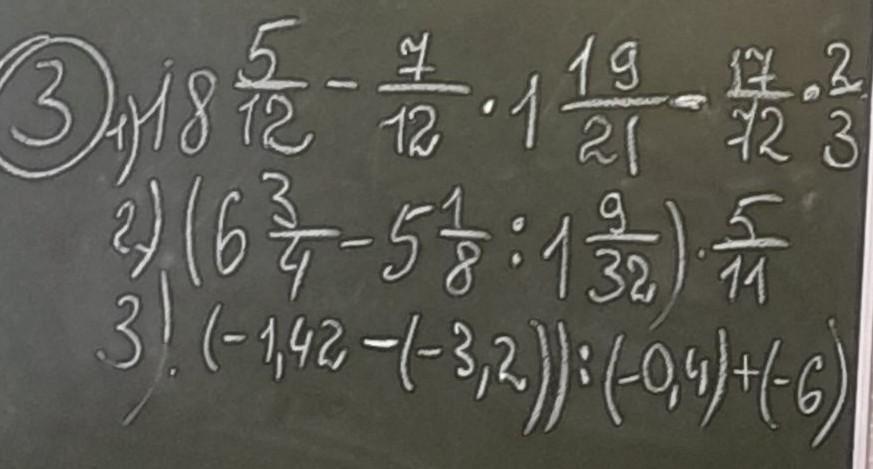 ③ 1) 18 5/12 - 7/12 · 1 19/21 - 17/72 · 2/3
2) (6 3/4 - 5 1/8 : 1 9/32) · 5/11
3). (-1,42 - (-3,2)) : (-0,4) + (-6)